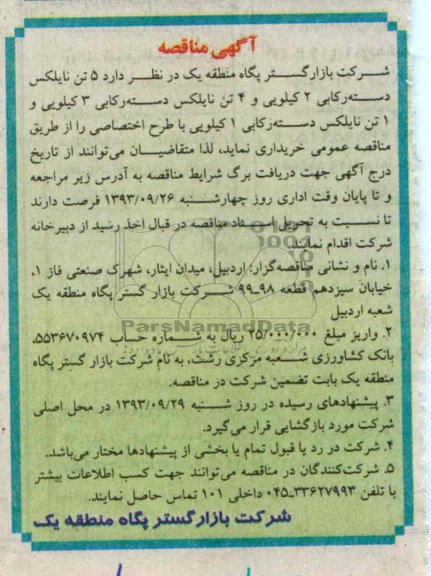 آگهی مناقصه
شرکت بازارگستر پگاه منطقه یک در نظر دارد ۵ تن نایلکس
دسته‌رکابی ۲ کیلویی و ۴ تن نایلکس دسته‌رکابی ۳ کیلویی و
۱ تن نایلکس دسته‌رکابی ۱ کیلویی با طرح اختصاصی را از طریق
مناقصه عمومی خریداری نماید، لذا متقاضیان می‌توانند از تاریخ
درج آگهی جهت دریافت برگ شرایط مناقصه به آدرس زیر مراجعه
و تا پایان وقت اداری روز چهارشنبه ۱۳۹۳/۰۹/۲۶ فرصت دارند
تا نسبت به تحویل اسناد مناقصه در قبال اخذ رسید از دبیرخانه
شرکت اقدام نمایند.
۱. نام و نشانی مناقصه‌گزار: اردبیل، میدان ایثار، شهرک صنعتی فاز ۱،
خیابان سیزدهم قطعه ۹۸ـ۹۹ شرکت بازار گستر پگاه منطقه یک
شعبه اردبیل
ParsNamadData
۲. واریز مبلغ ۲۵/۰۰۰/۰۰۰ ریال به شماره حساب ۵۵۳۶۷۰۹۷۴،
بانک کشاورزی شعبه مرکزی رشت، به نام شرکت بازار گستر پگاه
منطقه یک بابت تضمین شرکت در مناقصه.
۳. پیشنهادهای رسیده در روز شنبه ۱۳۹۳/۰۹/۲۹ در محل اصلی
شرکت مورد بازگشایی قرار می‌گیرد.
۴. شرکت در رد یا قبول تمام یا بخشی از پیشنهادها مختار می‌باشد.
۵. شرکت‌کنندگان در مناقصه می‌توانند جهت کسب اطلاعات بیشتر
با تلفن ۳۳۶۲۷۹۹۳ـ۰۴۵ داخلی ۱۰۱ تماس حاصل نمایند.
شرکت بازارگستر پگاه منطقه یک